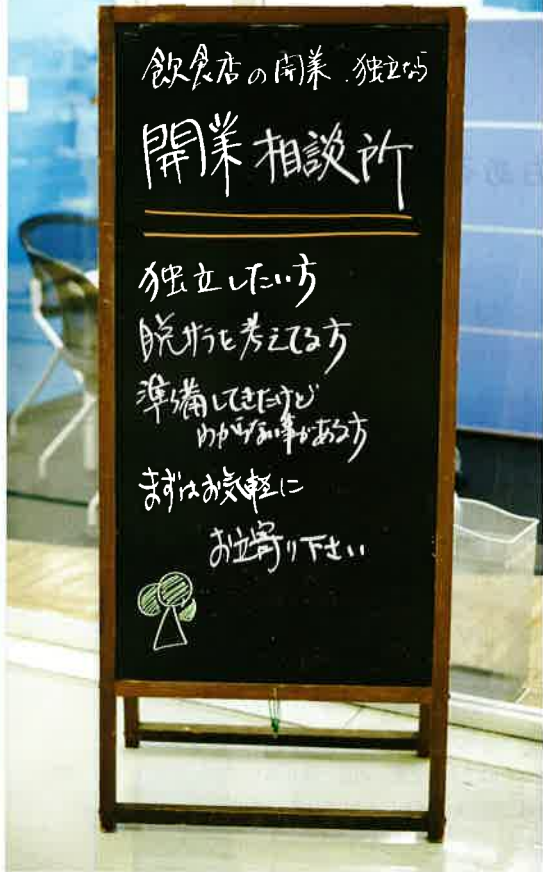 飲食店の開業.独立なら
開業相談所
独立したい方
脱サラを考えてる方
準備してきたけど
わからない事がある方
まずはお気軽に
お立寄り下さい